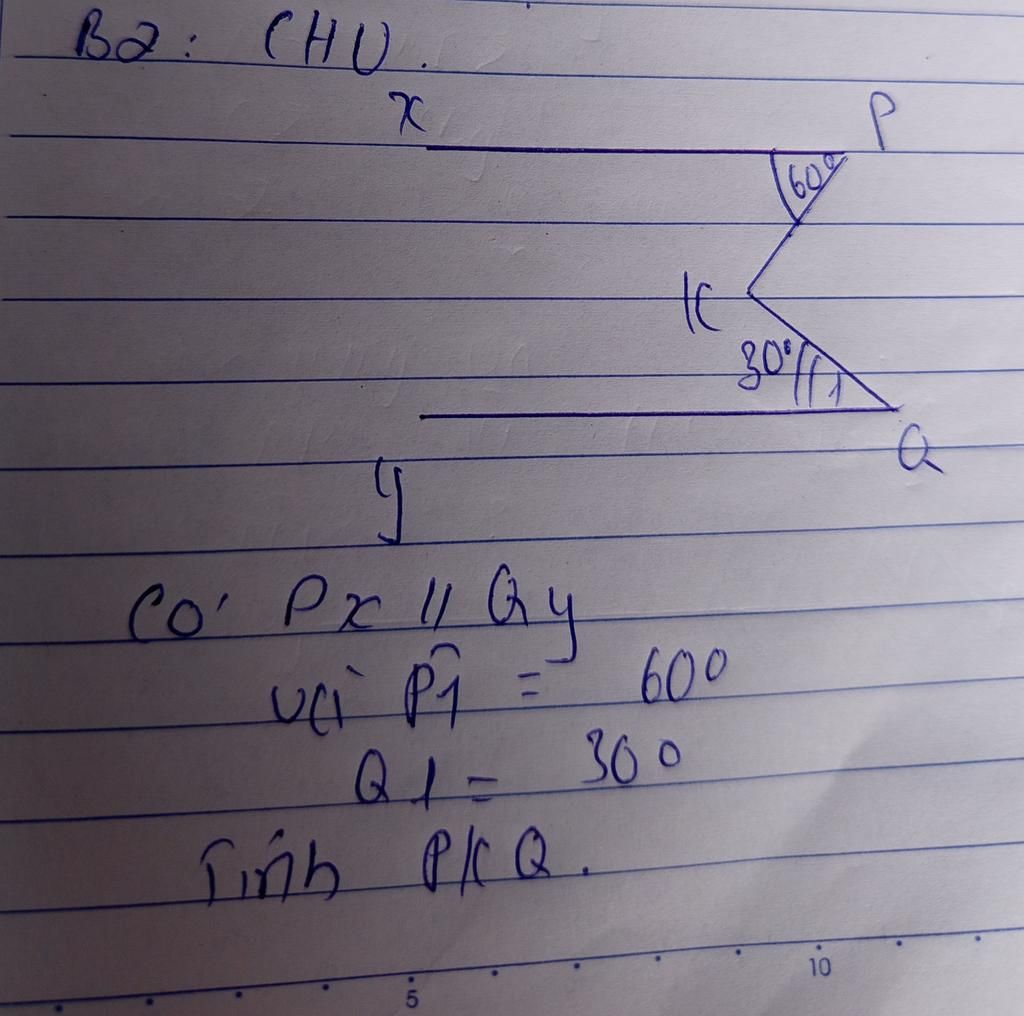 B2: CHV.
x P
60°
K
30° 1
Q
y
Có Px // Qy
và P̂1 = 60°
Q1 = 30°
Tính PKQ.
5 10